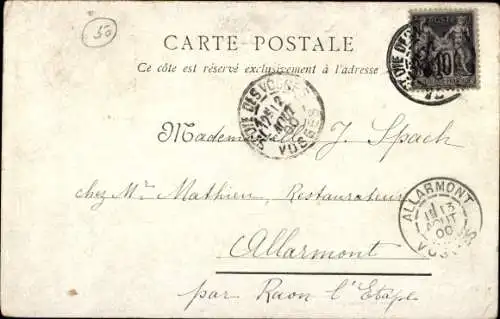 50
CARTE POSTALE
Ce côté est réservé exclusivement à l'adresse
POSTE
10
DIE DES VOSGES
12
AOUT
00
VOSGES
Mademoiselle J. Spach
chez Mr Mathieu, Restaurateur
Allarmont
par Raon l'Etape
ALLARMONT
13
AOUT
00
VOSGES